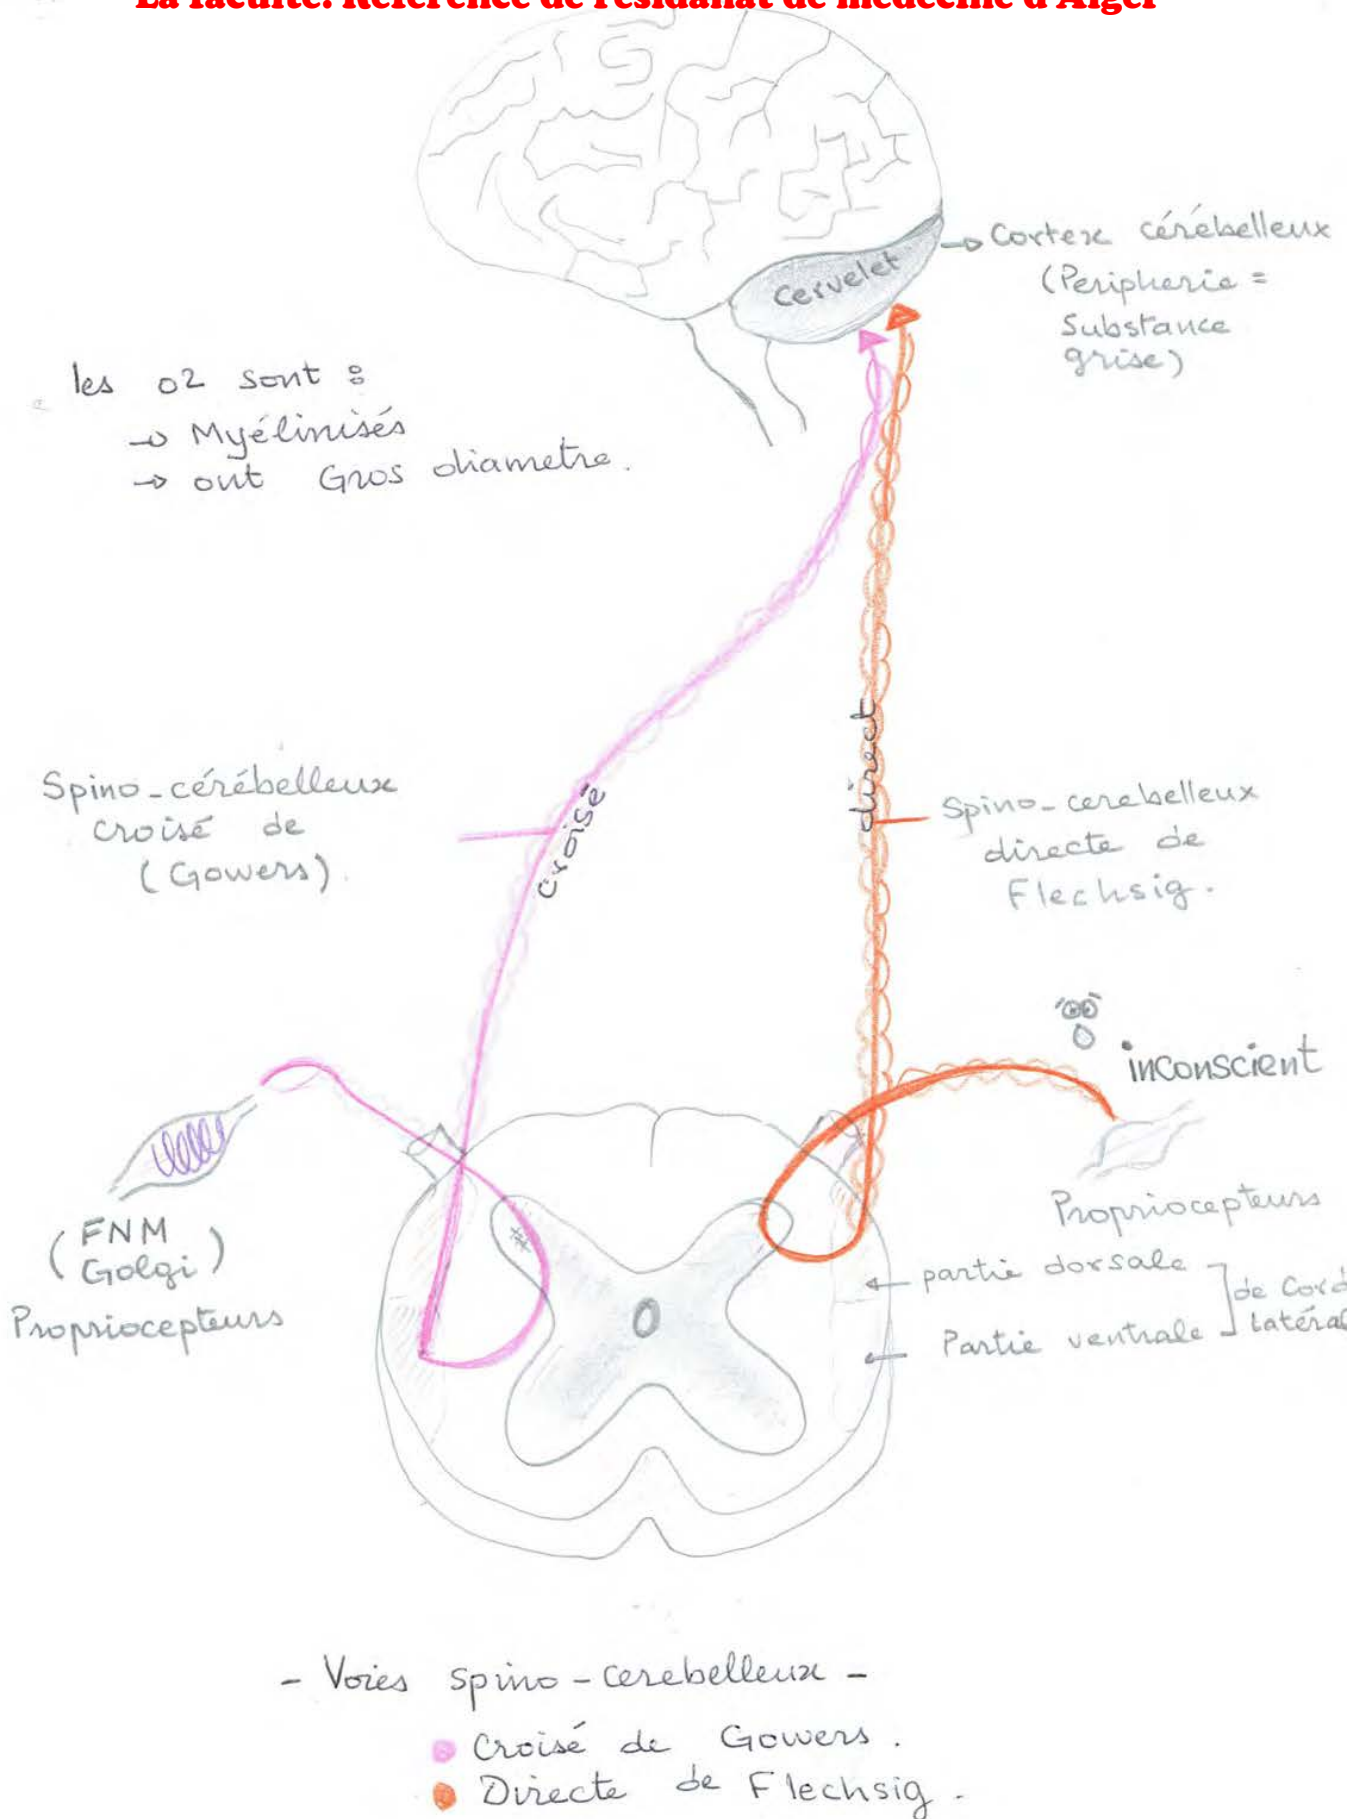 La faculté: Référence de résidanat de médecine d'Alger
Cervelet
→ Cortex cérébelleux
(Peripherie =
Substance
grise)
les 02 sont :
→ Myélinisés
→ ont Gros diametre.
Spino-cérébelleux
croisé de
(Gowers).
croisé
direct
Spino-cerebelleux
directe de
Flechsig.
inconscient
(FNM
Golgi)
Propriocepteurs
Propriocepteurs
← partie dorsale
← Partie ventrale
de Cord
latéral
- Voies spino-cerebelleux -
Croisé de Gowers.
Directe de Flechsig.